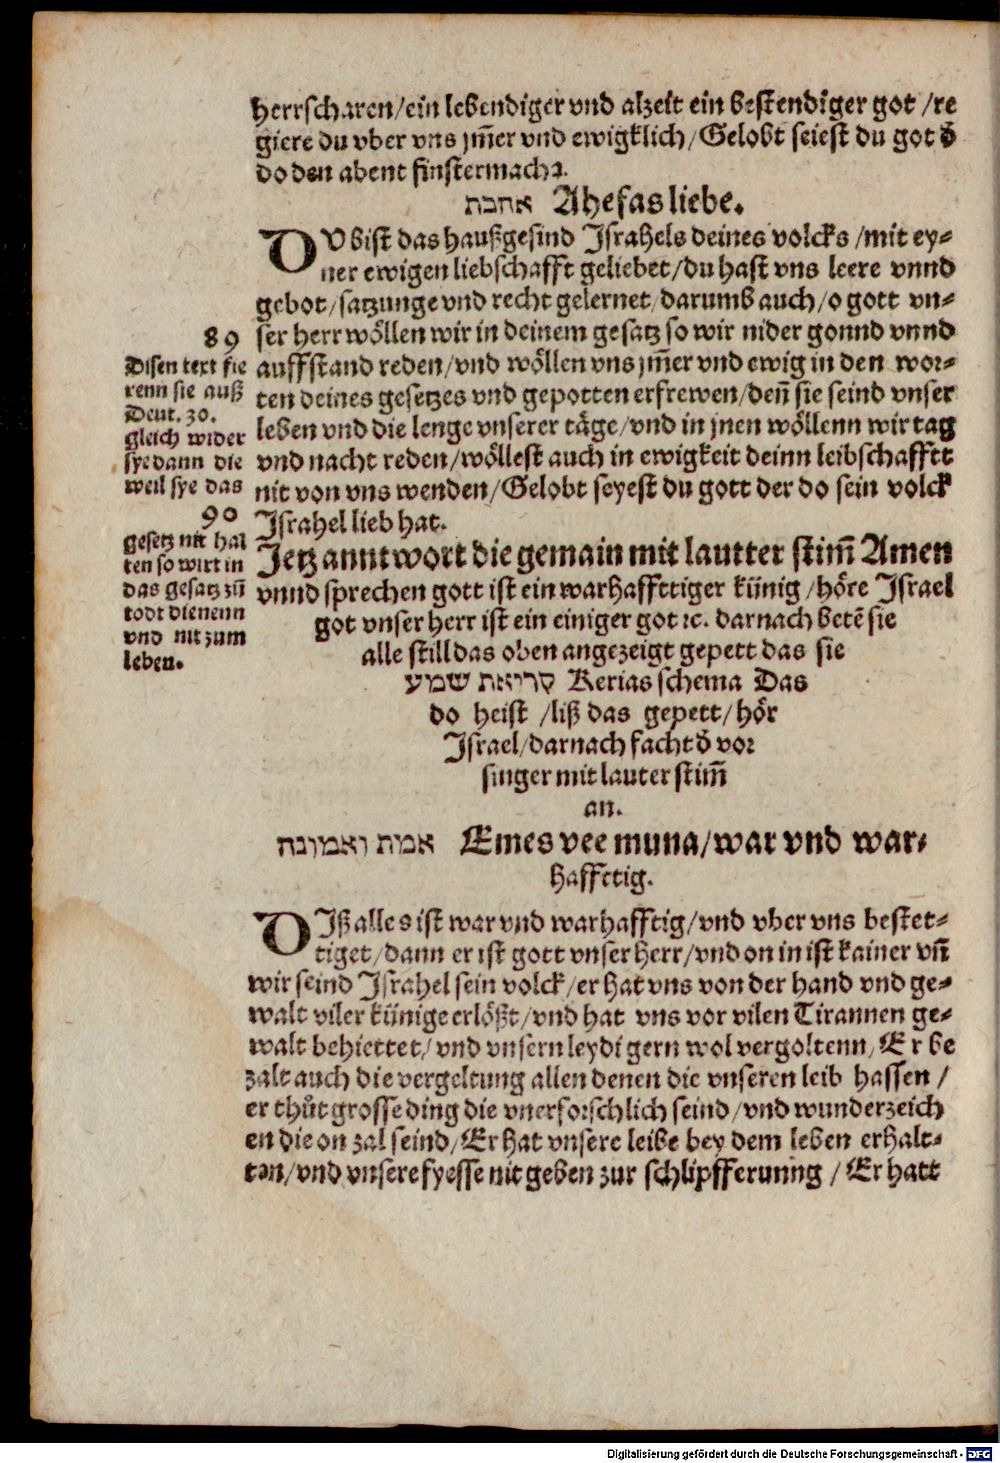 herrscharen/ein lebendiger vnd alzeit ein bestendiger got /re
giere du vber vns ym̃er vnd ewigklich/Gelobt seiest du got d̾
do den abent finstermacht.
אהבת Ahefas liebe.
DV bist das haußgesind Israhels deines volcks /mit ey-
ner ewigen liebschafft geliebet/du hast vns leere vnnd
gebot/satzunge vnd recht gelernet/darumb auch/o gott vn-
ser herr wöllen wir in deinem gesatz so wir nider gonnd vnnd
auffstand reden/vnd wöllen vns ym̃er vnd ewig in den wor-
ten deines gesetzes vnd gepotten erfrewen/deñ sie seind vnser
leben vnd die lenge vnserer täge/vnd in jnen wöllenn wir tag
vnd nacht reden/wöllest auch in ewigkeit deinn leibschafftt
nit von vns wenden/Gelobt seyest du gott der do sein volck
Israhel lieb hat.
89
Disen text fie
renn sie auß
Deut. 30.
gleich wider
sye dann die
weil sye das
90
gesetz nit hal
ten so wirt in
das gesatz zũ
todt dienenn
vnd nit zum
leben.
Jetz anntwort die gemain mit lautter stim̃ Amen
vnnd sprechen gott ist ein warhaffttiger künig /höre Israel
got vnser herr ist ein einiger got ꝛc. darnach betẽ sie
alle still das oben angezeigt gepett das sie
קריאת שמע Kerias schema Das
do heist /liß das gepett/hör
Israel/darnach facht d̾ vor
singer mit lauter stim̃
an.
אמת ואמונה Emes vee muna/war vnd war-
haffttig.
DIß alles ist war vnd warhafftig/vnd vber vns bestet-
tiget/dann er ist gott vnser herr/vnd on in ist kainer vñ
wir seind Israhel sein volck/er hat vns von der hand vnd ge-
walt viler künige erlößt/vnd hat vns vor vilen Tirannen ge-
walt behiettet/vnd vnsern leydigern wol vergoltenn/Er be
zalt auch die vergeltung allen denen die vnseren leib hassen /
er thůt grosse ding die vnerforschlich seind/vnd wunderzeich
en die on zal seind/Er hat vnsere leibe bey dem leben erhalt-
ten/vnd vnsere fyesse nit geben zur schlipfferunng /Er hatt
Digitalisierung gefördert durch die Deutsche Forschungsgemeinschaft - DFG